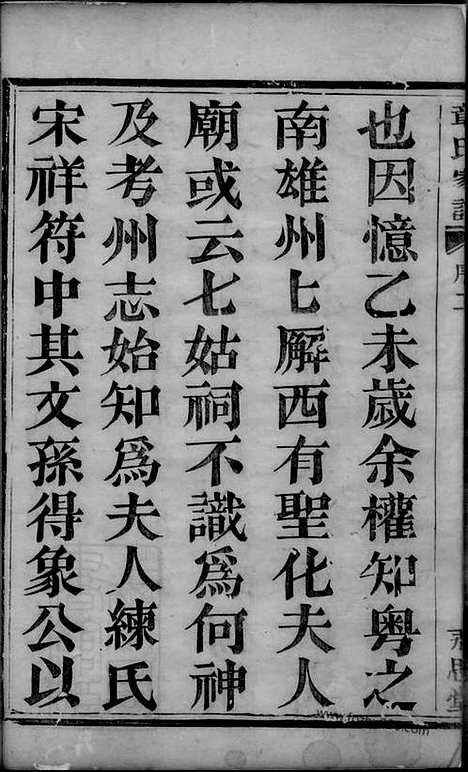 章氏家譜
也因憶乙未歲余權知粤之
南雄州七廨西有聖化夫人
廟或云七姑祠不識爲何神
及考州志始知爲夫人練氏
宋祥符中其文孫得象公以